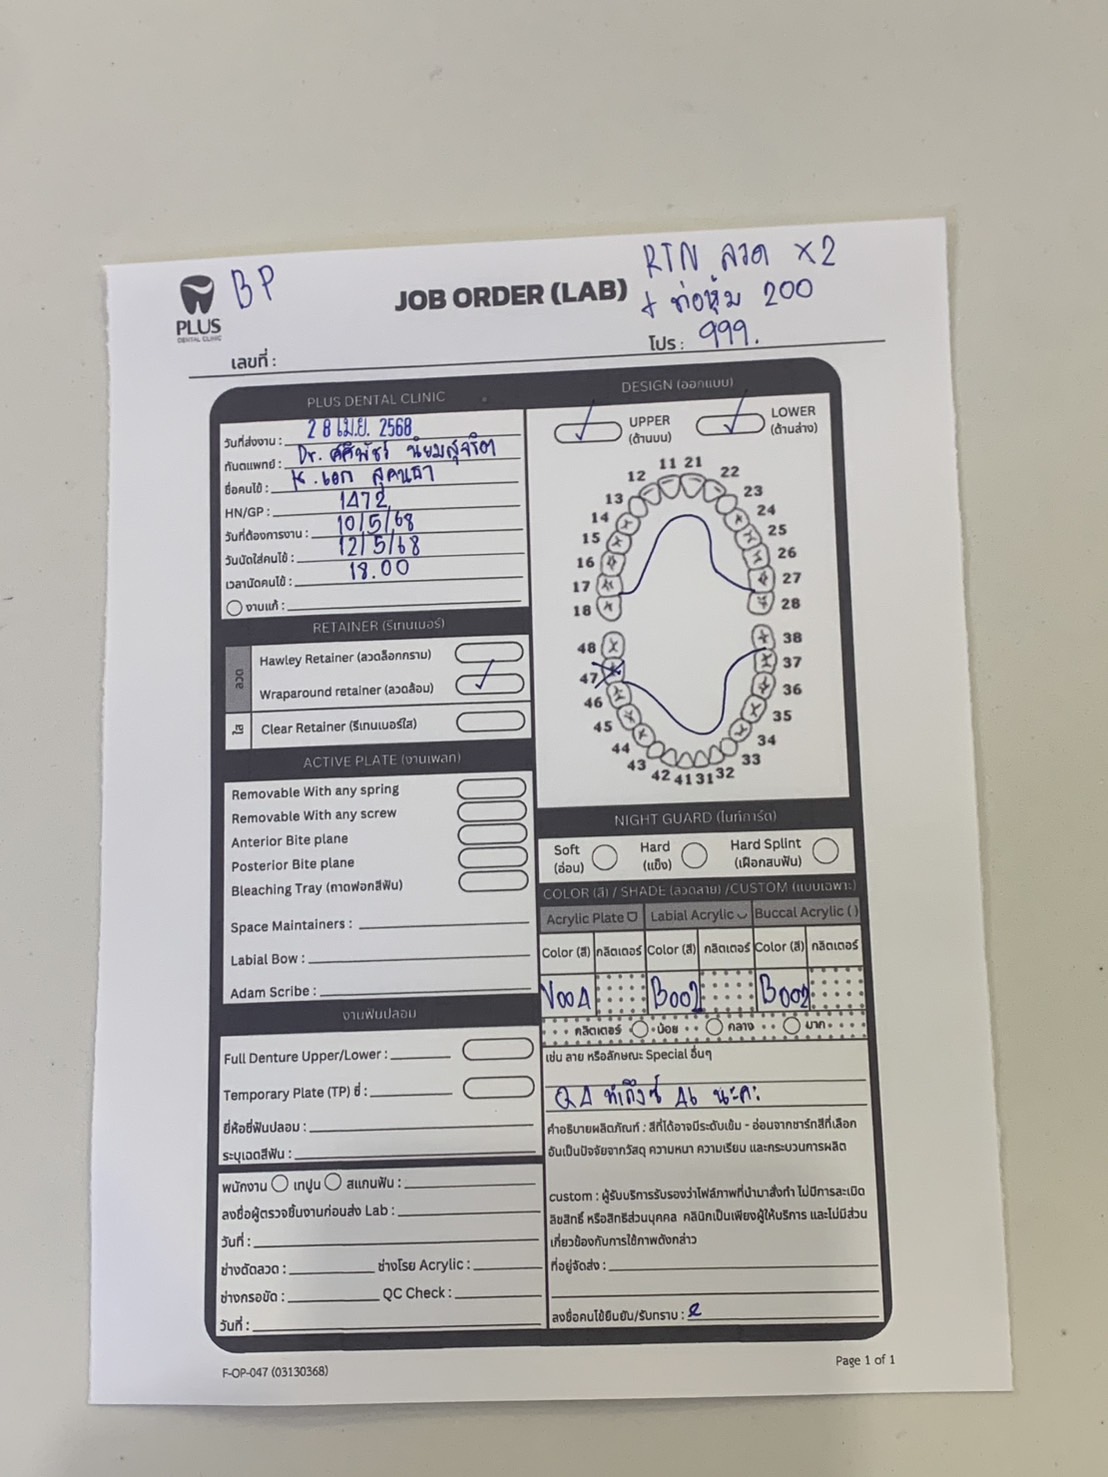 PLUS
DENTAL CLINIC
BP
JOB ORDER (LAB)
RTN ลวด x2
+ ท่อหุ้ม 200
โปร : 999.
เลขที่ :
PLUS DENTAL CLINIC
วันที่ส่งงาน : 28 เม.ย. 2568
ทันตแพทย์ : Dr. ศศิพัชร์ นิยมสุจริต
ชื่อคนไข้ : K. เอก สุคนธา
HN/GP : 1472
วันที่ต้องการงาน : 10/5/68
วันนัดใส่คนไข้ : 12/5/68
เวลานัดคนไข้ : 18.00
งานแก้ :
RETAINER (รีเทนเนอร์)
ลวด
Hawley Retainer (ลวดล็อกกราม)
Wraparound retainer (ลวดล้อม)
ใส
Clear Retainer (รีเทนเนอร์ใส)
ACTIVE PLATE (งานเพลท)
Removable With any spring
Removable With any screw
Anterior Bite plane
Posterior Bite plane
Bleaching Tray (ถาดฟอกสีฟัน)
Space Maintainers :
Labial Bow :
Adam Scribe :
งานฟันปลอม
Full Denture Upper/Lower :
Temporary Plate (TP) ซี่ :
ยี่ห้อซี่ฟันปลอม :
ระบุเฉดสีฟัน :
พนักงาน เทปูน สแกนฟัน :
ลงชื่อผู้ตรวจชิ้นงานก่อนส่ง Lab :
วันที่ :
ช่างดัดลวด : ช่างโรย Acrylic :
ช่างกรอขัด : QC Check :
วันที่ :
DESIGN (ออกแบบ)
UPPER
(ด้านบน)
LOWER
(ด้านล่าง)
11 21
12 22
13 23
14 24
15 25
16 26
17 27
18 28
48 38
47 37
46 36
45 35
44 34
43 33
42 41 31 32
NIGHT GUARD (ไนท์การ์ด)
Soft
(อ่อน)
Hard
(แข็ง)
Hard Splint
(เฝือกสบฟัน)
COLOR (สี) / SHADE (ลวดลาย) /CUSTOM (แบบเฉพาะ)
Acrylic Plate Labial Acrylic Buccal Acrylic ( )
Color (สี) กลิตเตอร์ Color (สี) กลิตเตอร์ Color (สี) กลิตเตอร์
V00A B002 B002
กลิตเตอร์ น้อย กลาง มาก
เช่น ลาย หรือลักษณะ Special อื่นๆ
QA ทำถึงซี่ A6 นะคะ
คำอธิบายผลิตภัณฑ์ : สีที่ได้อาจมีระดับเข้ม - อ่อนจากชาร์ทสีที่เลือก
อันเป็นปัจจัยจากวัสดุ ความหนา ความเรียบ และกระบวนการผลิต
custom : ผู้รับบริการรับรองว่าไฟล์ภาพที่นำมาสั่งทำ ไม่มีการละเมิด
ลิขสิทธิ์ หรือสิทธิส่วนบุคคล คลินิกเป็นเพียงผู้ให้บริการ และไม่มีส่วน
เกี่ยวข้องกับการใช้ภาพดังกล่าว
ที่อยู่จัดส่ง :
ลงชื่อคนไข้ยืนยัน/รับทราบ :
F-OP-047 (03130368)
Page 1 of 1